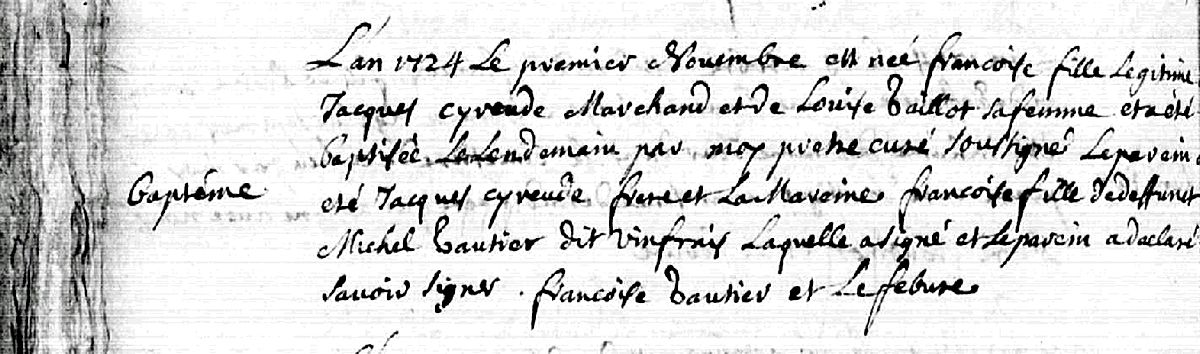 L'an 1724 le premier Novembre est neé francoise fille Legitime
Jacques cyreude Marchand et de Louise Baillot sa femme et a été
baptisée Le Lendemain par moy pretre curé soussigné Le parein a
baptéme
eté Jacques cyreude frere et La Mareine francoise fille de deffunct
Michel Bautier dit vinfrais Laquelle a signé et Le parein a declaré
savoir signer . francoise Bautier et Lefebure